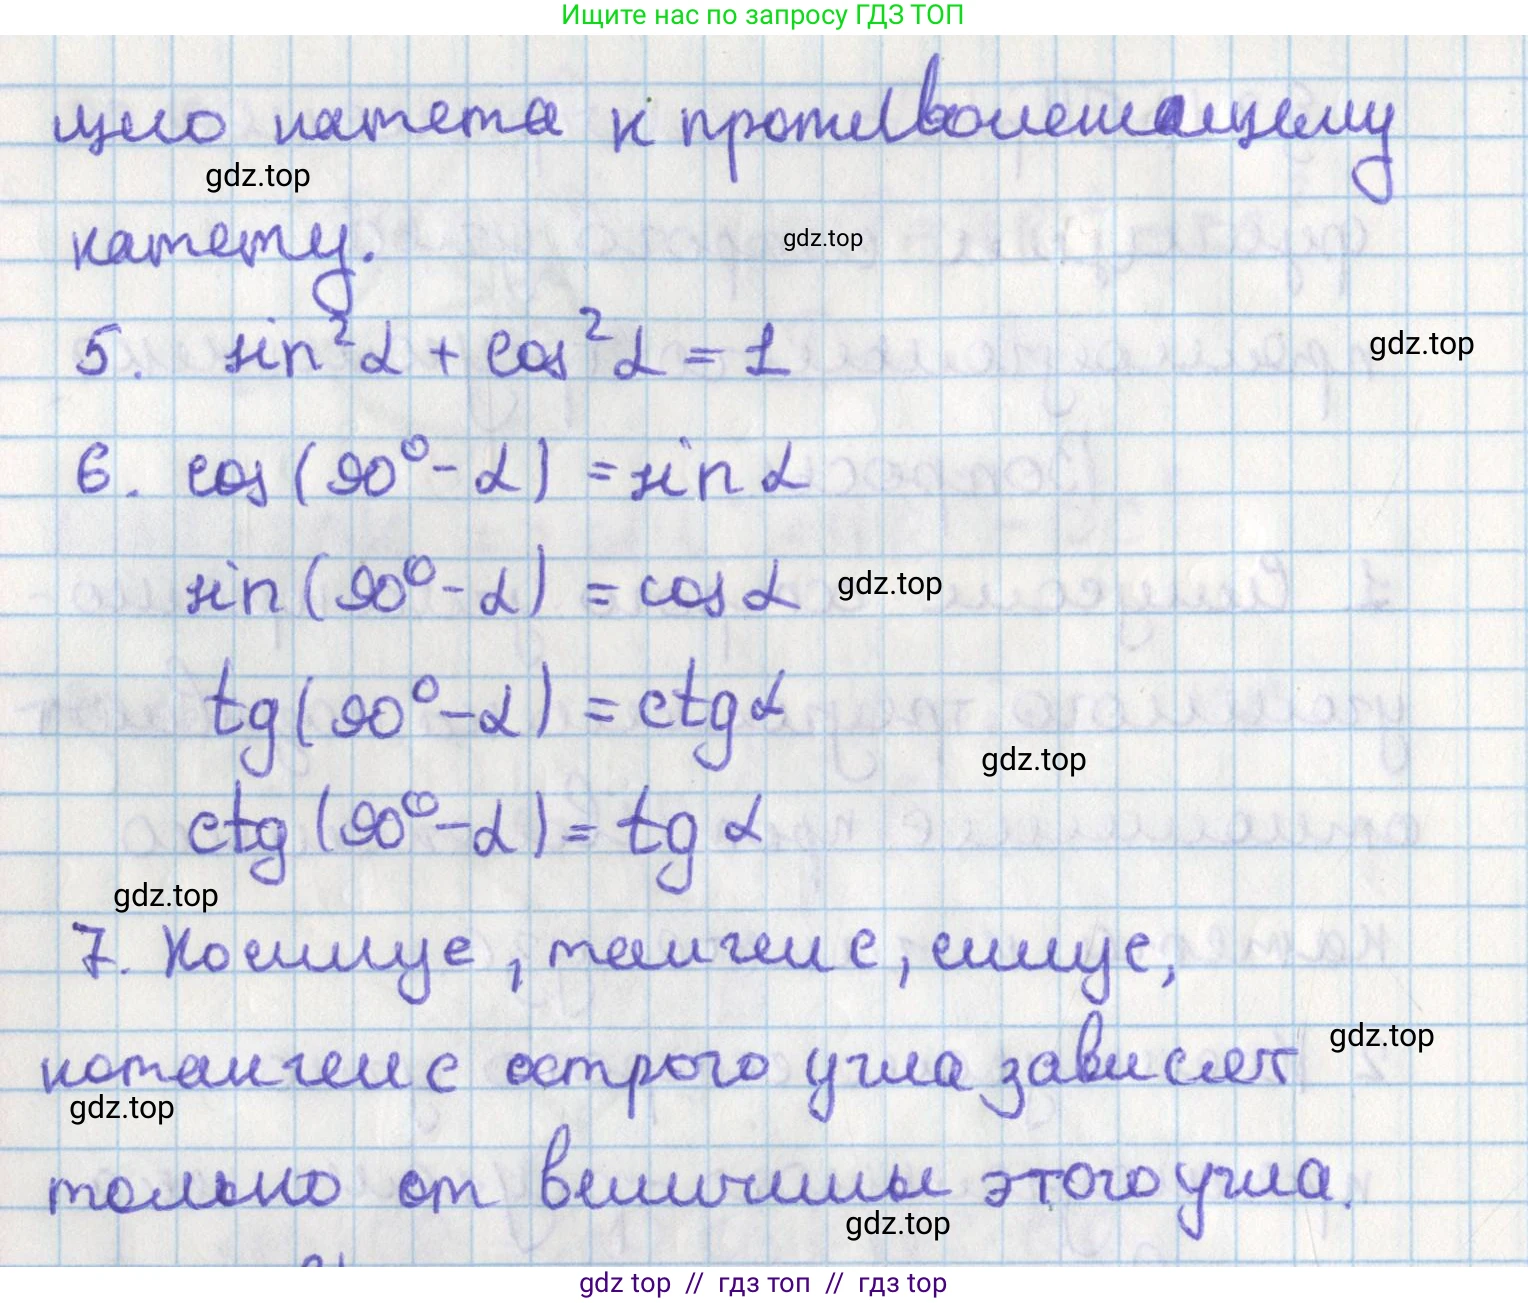 Ищите нас по запросу ГДЗ ТОП
щего катета к противолежащему
gdz.top
катету.
gdz.top
5. sin²α + cos²α = 1
gdz.top
6. cos(90° - α) = sin α
sin(90° - α) = cos α
gdz.top
tg(90° - α) = ctg α
gdz.top
ctg(90° - α) = tg α
gdz.top
7. Косинус, тангенс, синус,
gdz.top
котангенс острого угла зависят
gdz.top
только от величины этого угла.
gdz.top
gdz top // гдз топ // гдз top